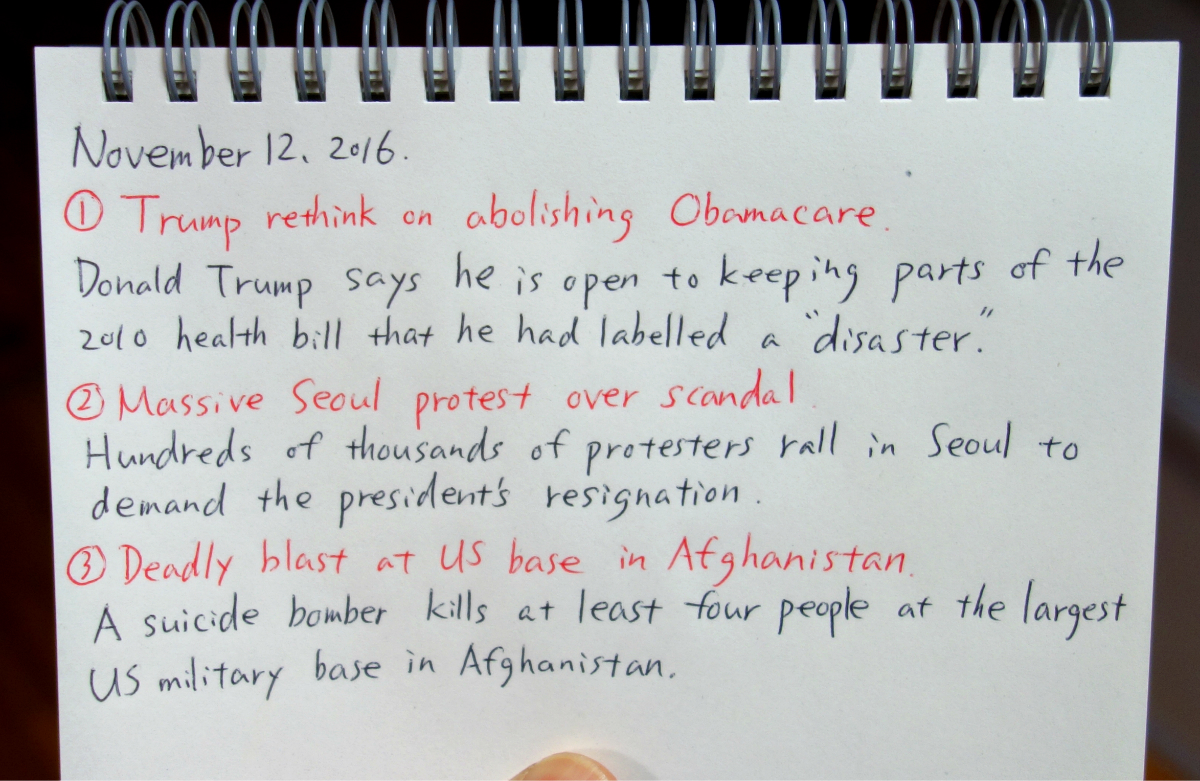 November 12, 2016.
① Trump rethink on abolishing Obamacare.
Donald Trump says he is open to keeping parts of the
2010 health bill that he had labelled a "disaster."
② Massive Seoul protest over scandal.
Hundreds of thousands of protesters rall in Seoul to
demand the president's resignation.
③ Deadly blast at US base in Afghanistan.
A suicide bomber kills at least four people at the largest
US military base in Afghanistan.